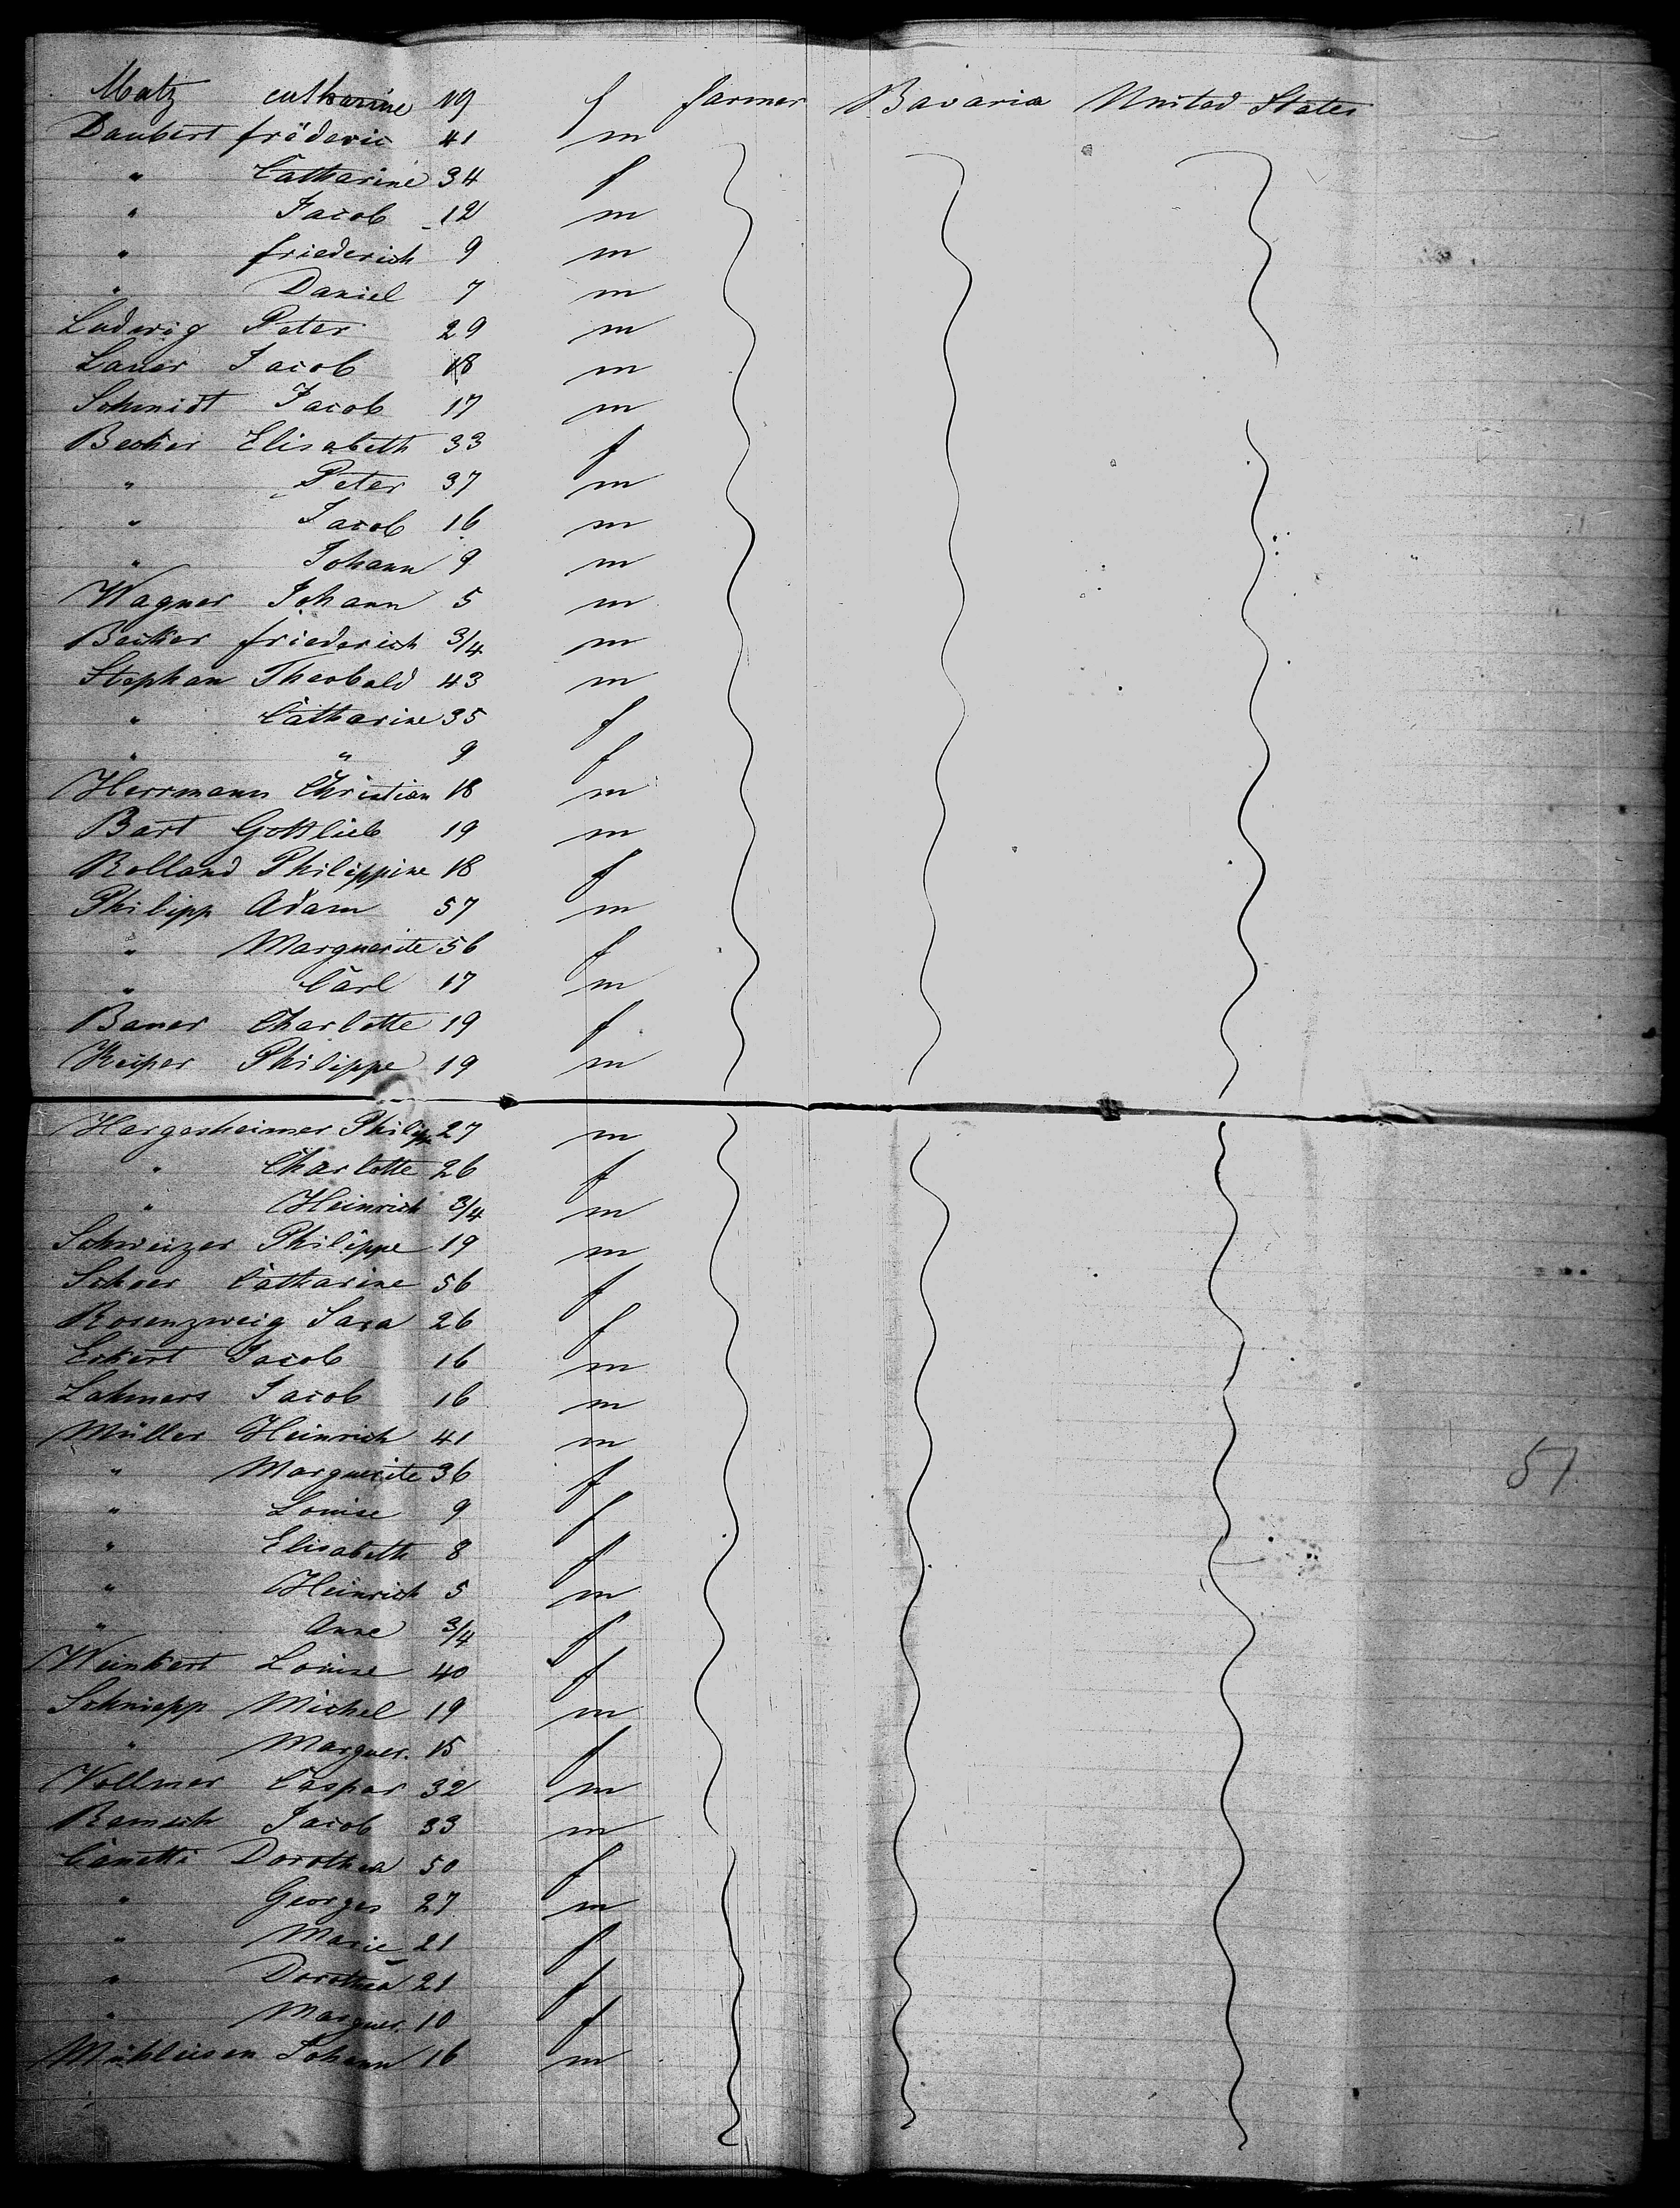 Matz catharine 19 f farmer Bavaria United States
Daubert fröderic 41 m
" Catharine 34 f
" Jacob 12 m
" friederich 9 m
" Daniel 7 m
Ludwig Peter 29 m
Lauer Jacob 18 m
Schmidt Jacob 17 m
Becker Elisabeth 33 f
" Peter 37 m
" Jacob 16 m
" Johann 9 m
Wagner Johann 5 m
Becker friederich 3/4 m
Stephan Theobald 43 m
" Catharine 35 f
" " 9 f
Herrmann Christian 18 m
Bart Gottlieb 19 m
Rolland Philippine 18 f
Philipp Adam 57 m
" Marguerite 56 f
" Carl 17 m
Bauer Charlotte 19 f
Keiper Philippe 19 m
Hargesheimer Philipp 27 m
" Charlotte 26 f
" Heinrich 3/4 m
Schweizer Philippe 19 m
Scheer Catharine 56 f
Rosenzweig Sara 26 f
Eckert Jacob 16 m
Lahmers Jacob 16 m
Müller Heinrich 41 m
" Marguerite 36 f
" Louise 9 f
" Elisabeth 8 f
" Heinrich 5 m
" Anne 3/4 f
Weinkert Louise 40 f
Schniepp Michel 19 m
" Marguer. 15 f
Vollmer Caspar 32 m
Ramsch Jacob 33 m
Canetti Dorothea 50 f
" Georges 27 m
" Marie 21 f
" Dorothea 21 f
" Marguer. 10 f
Mühleisen Johann 16 m
51